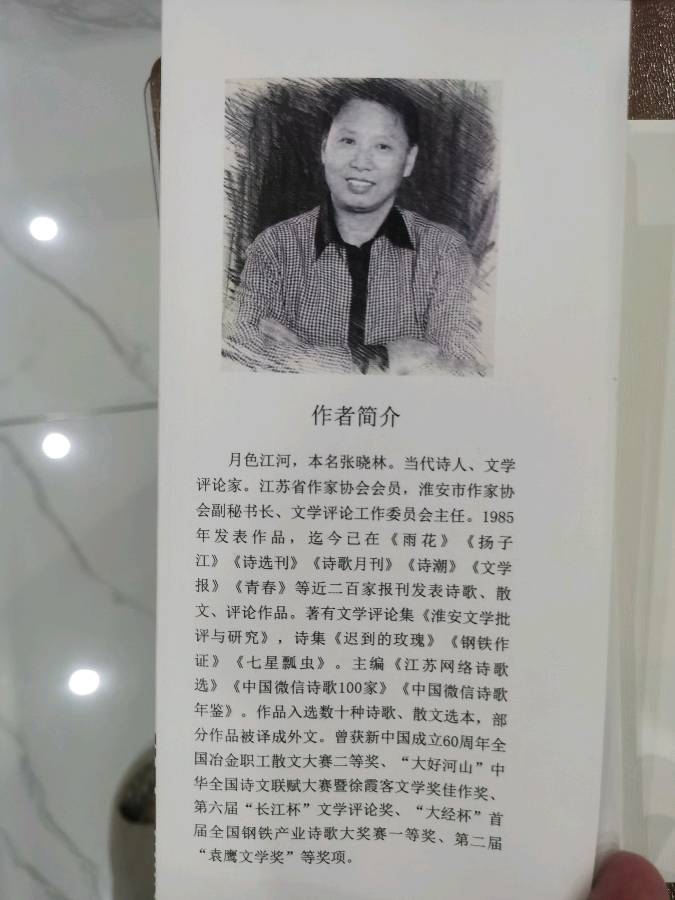 作者简介
月色江河，本名张晓林。当代诗人、文学
评论家。江苏省作家协会会员，淮安市作家协
会副秘书长、文学评论工作委员会主任。1985
年发表作品，迄今已在《雨花》《扬子
江》《诗选刊》《诗歌月刊》《诗潮》《文学
报》《青春》等近二百家报刊发表诗歌、散
文、评论作品。著有文学评论集《淮安文学批
评与研究》，诗集《迟到的玫瑰》《钢铁作
证》《七星瓢虫》。主编《江苏网络诗歌
选》《中国微信诗歌100家》《中国微信诗歌
年鉴》。作品入选数十种诗歌、散文选本，部
分作品被译成外文。曾获新中国成立60周年全
国冶金职工散文大赛二等奖、“大好河山”中
华全国诗文联赋大赛暨徐霞客文学奖佳作奖、
第六届“长江杯”文学评论奖、“大经杯”首
届全国钢铁产业诗歌大奖赛一等奖、第二届
“袁鹰文学奖”等奖项。